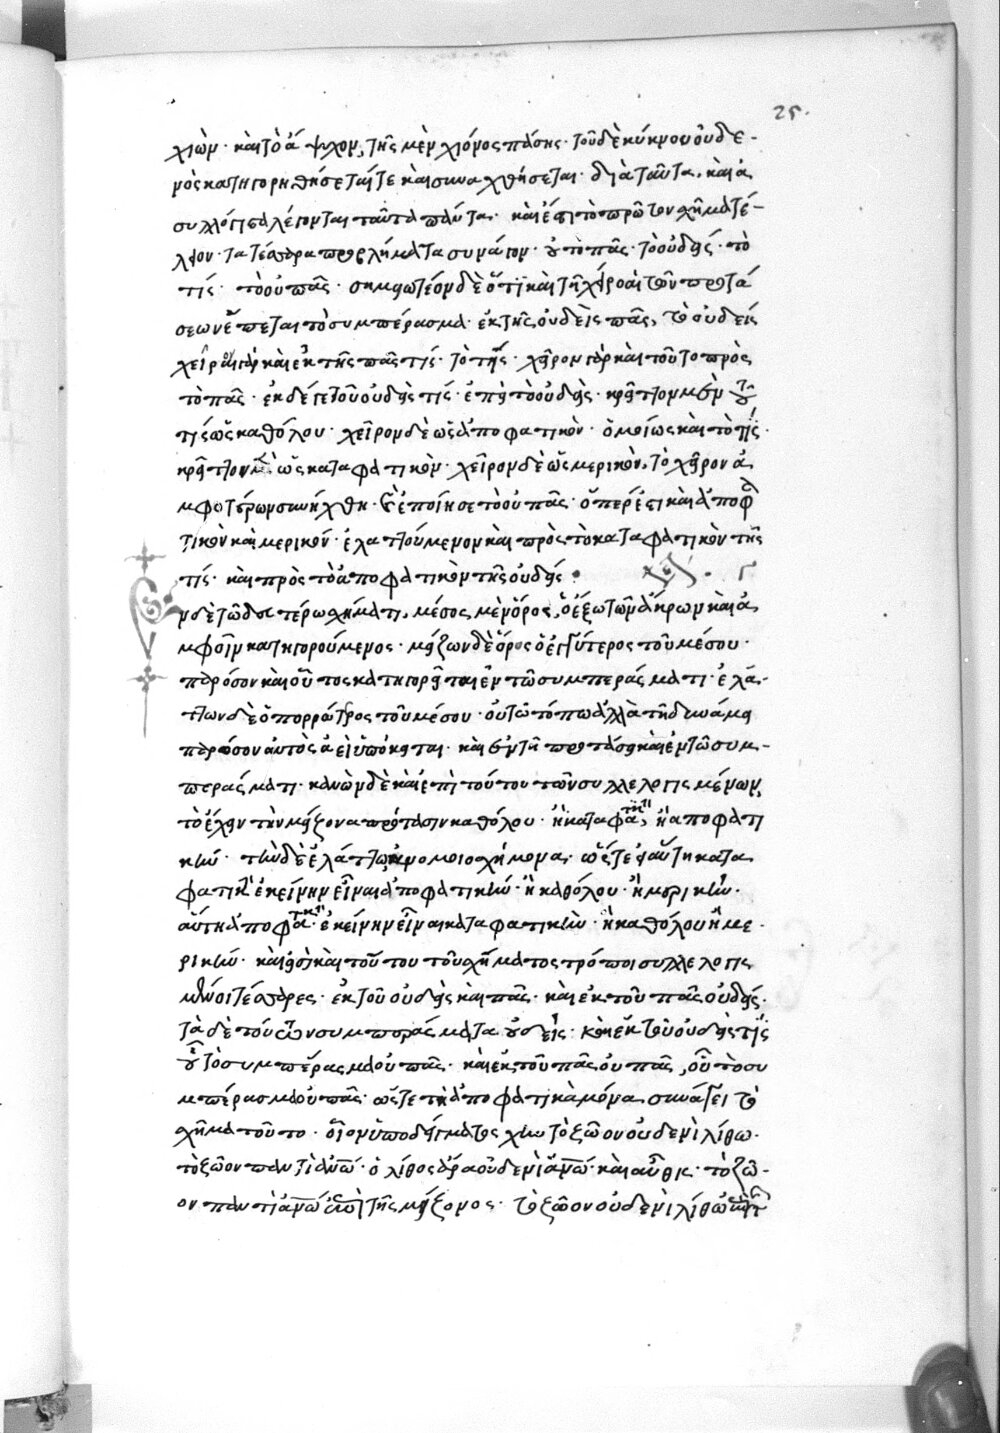 25.
χιὼν · καὶ τὸ ἄψυχον, τῆς μὲν χιόνος πάσης · τοῦ δὲ κύκνου οὐδε-
νὸς κατηγορηθήσεταί τε καὶ συναχθήσεται · διὰ ταῦτα, καὶ ἀ
συλλόγιστα λέγονται ταῦτα πάντα · καὶ ἐπὶ τὸ πρῶτον σχῆμα τέ-
λειον · τὰ τέσσαρα προβλήματα συνάγον · τὸ πᾶς · τὸ οὐδείς · τὸ
τίς · τὸ οὐ πᾶς · σημειωτέον δὲ ὅτι καὶ τῇ χείρονι τῶν προτά
σεων ἕπεται τὸ συμπέρασμα · ἐκ τῆς οὐδεὶς πᾶς, τὸ οὐδείς
χεῖρον γὰρ καὶ ἐκ τῆς πᾶς τίς · τὸ τίς · χεῖρον γὰρ καὶ τοῦτο πρὸς
τὸ πᾶς · ἐκ δέ γε τοῦ οὐδεὶς τίς · ἐπεὶ τὸ οὐδεὶς · κρεῖττον μὲν τοῦ
τίς ὡς καθόλου · χεῖρον δὲ ὡς ἀποφατικόν · ὁμοίως καὶ τὸ τίς
κρεῖττον μὲν ὡς καταφατικὸν · χεῖρον δὲ ὡς μερικὸν, τὸ χεῖρον ἀ
μφοτέρων συνήχθη · καὶ ἐποίησε τὸ οὐ πᾶς · ὅπερ ἐστὶ καὶ ἀποφα
τικὸν καὶ μερικόν · ἐλαττούμενον καὶ πρὸς τὸ καταφατικὸν τῆς
τίς · καὶ πρὸς τὸ ἀποφατικὸν τῆς οὐδείς ·
Ἐν δὲ τῷ δευτέρῳ σχήματι, μέσος μὲν ὅρος, ὁ ἔξω τῶν ἄκρων καὶ ἀ
μφοῖν κατηγορούμενος · μείζων δὲ ὅρος ὁ ἐγγύτερος τοῦ μέσου ·
παρόσον καὶ οὗτος κατηγορεῖται ἐν τῷ συμπεράσματι · ἐλά-
ττων δὲ ὁ πορρώτερος τοῦ μέσου · οὐ τῷ τόπῳ ἀλλὰ τῇ δυνάμει
παρόσον αὐτὸς ἀεὶ ὑπόκειται · καὶ ἐν τῇ προτάσει καὶ ἐν τῷ συμ-
περάσματι · κανὼν δὲ καὶ ἐπὶ τούτου τῶν συλλελογισμένων,
τὸ ἔχειν τὴν μείζονα πρότασιν καθόλου · ἢ καταφατικὴν, ἢ ἀποφατι
κήν · τὴν δὲ ἐλάττω ἀνομοιοσχήμονα · ὥστε εἰ αὕτη κατα
φατικὴ ἐκείνην εἶναι ἀποφατικήν · ἢ καθόλου · ἢ μερικήν ·
αὕτη ἀποφατικὴ · ἐκείνην εἶναι καταφατικὴν · ἢ καθόλου ἢ με-
ρικήν · καὶ εἰσὶ καὶ τούτου τοῦ σχήματος τρόποι συλλελογισ
μένοι τέσσαρες · ἐκ τοῦ οὐδεὶς καὶ πᾶς · καὶ ἐκ τοῦ πᾶς οὐδείς ·
τὰ δὲ τούτων συμπεράσματα οὐδείς · καὶ ἐκ τοῦ οὐδεὶς τίς
οὗ τὸ συμπέρασμα οὐ πᾶς · καὶ ἐκ τοῦ πᾶς οὐ πᾶς, οὗ τὸ συ
μπέρασμα οὐ πᾶς · ὥστε τὰ ἀποφατικὰ μόνα συνάγει τὸ
σχῆμα τοῦτο · οἷον ὑποδείγματος χάριν τὸ ζῶον οὐδενὶ λίθῳ ·
τὸ ζῶον παντὶ ἀνω · ὁ λίθος ἄρα οὐδενὶ ἀνω · καὶ αὖθις · τὸ ζῶ-
ον παντὶ ἀνω ἀντὶ τῆς μείζονος · τὸ ζῶον οὐδενὶ λίθῳ